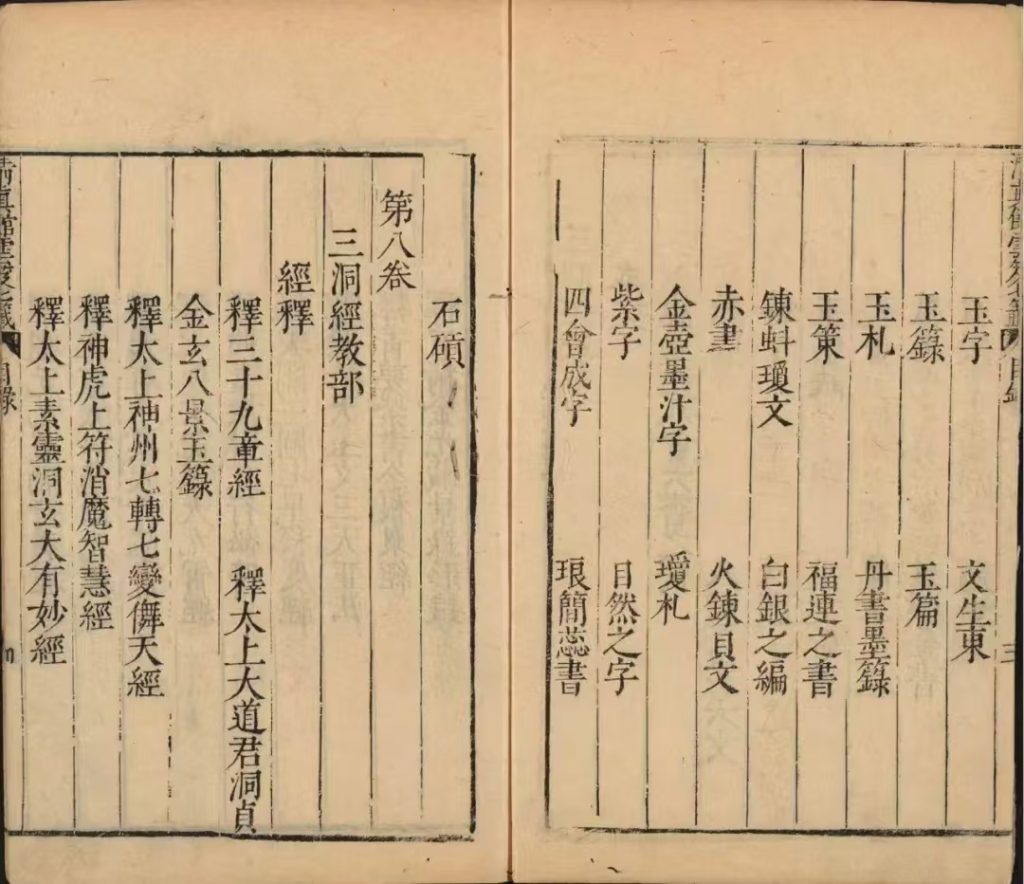 玉字　文生東
玉籙　玉篇
玉札　丹書墨籙
玉策　福連之書
鍊蚪瓊文　白銀之編
赤書　火鍊貝文
金壺墨汁字　瓊札
紫字　自然之字
四會成字　琅簡蕊書
石碩
第八卷
三洞經教部
經釋
釋三十九章經　釋太上大道君洞貞
金玄八景玉籙
釋太上神州七轉七變儛天經
釋神虎上符消魔智慧經
釋太上素靈洞玄大有妙經